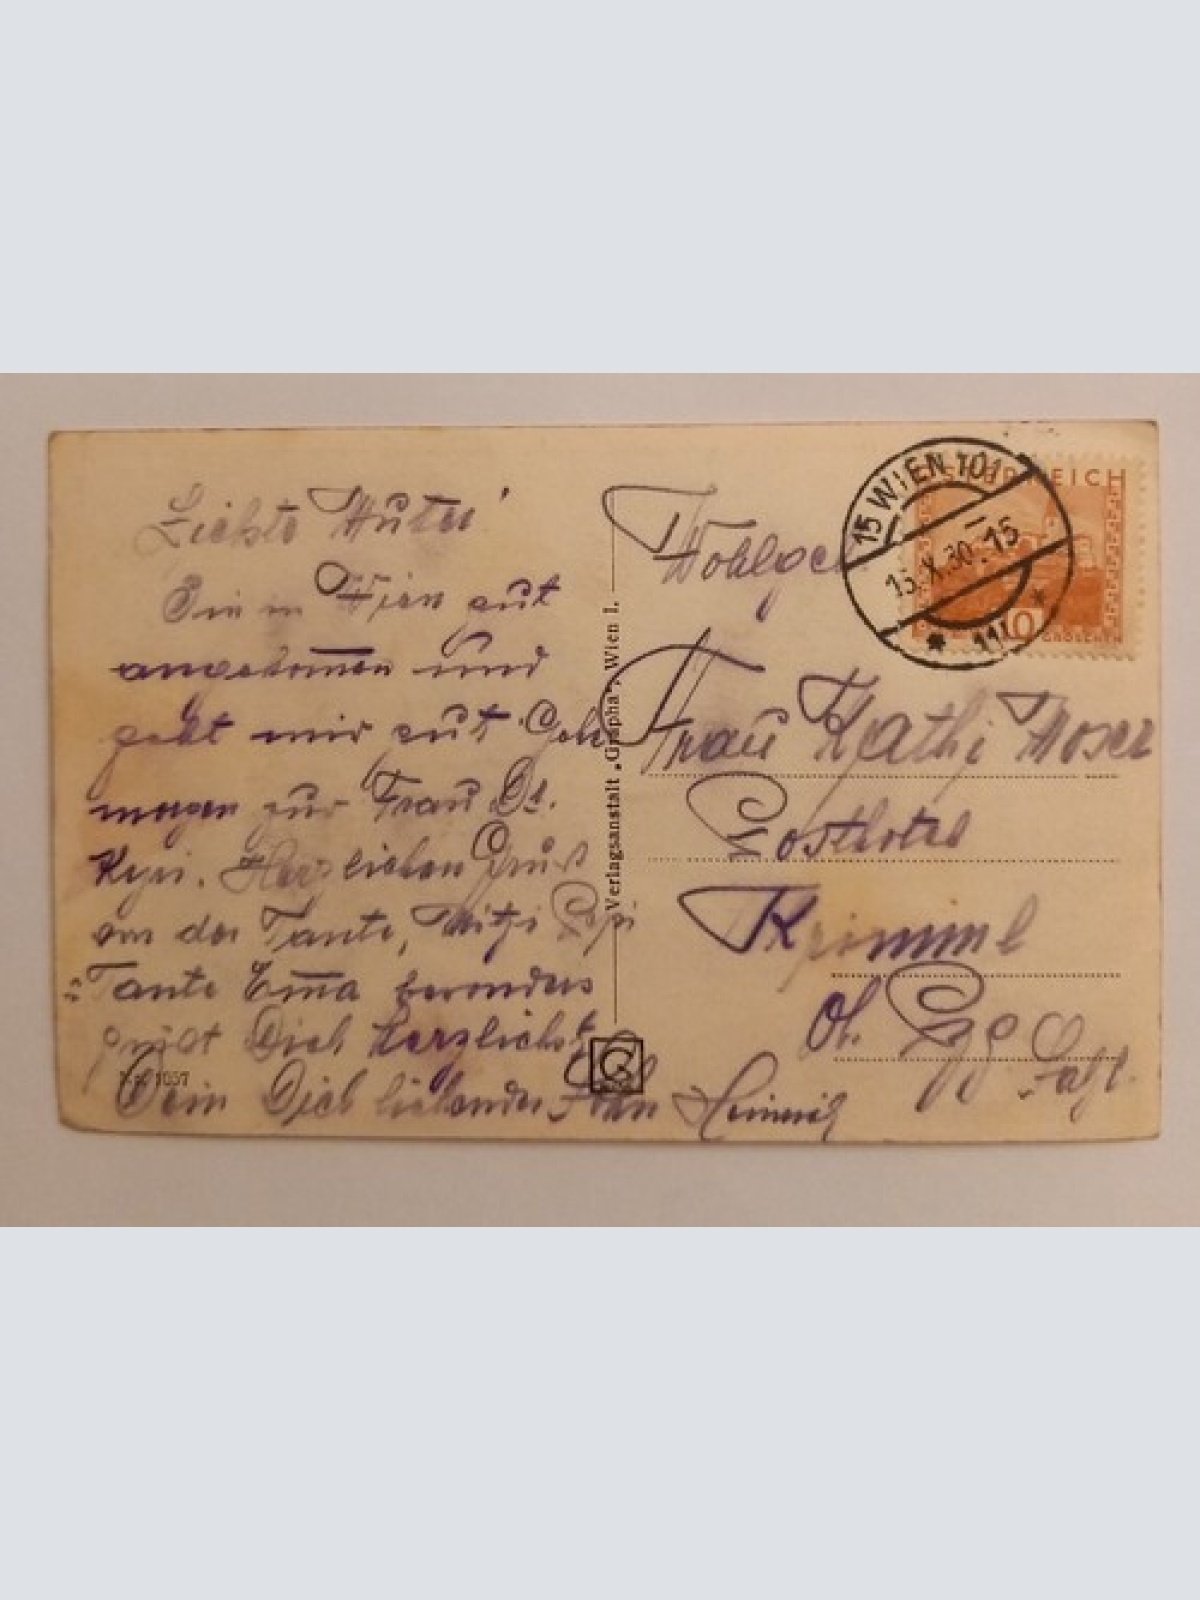 Liebste Mutter!
Bin in Wien gut
angekommen und
geht mir gut. Gehe
morgen zur Frau Dr.
Herzlichen Gruß
von der Tante, Mitzi Pepi
Tante Emma besonders
grüßt Dich herzlichst
Dein Dich liebender Heinrich
No. 1037
Verlagsanstalt „Grapha“, Wien I.
G
15 WIEN 101
15.X.30.-15
ÖSTERREICH
10 GROSCHEN
Wohlgeb
Frau Kathi Moser
Posthotel
Krimml
Ob. Pzg.